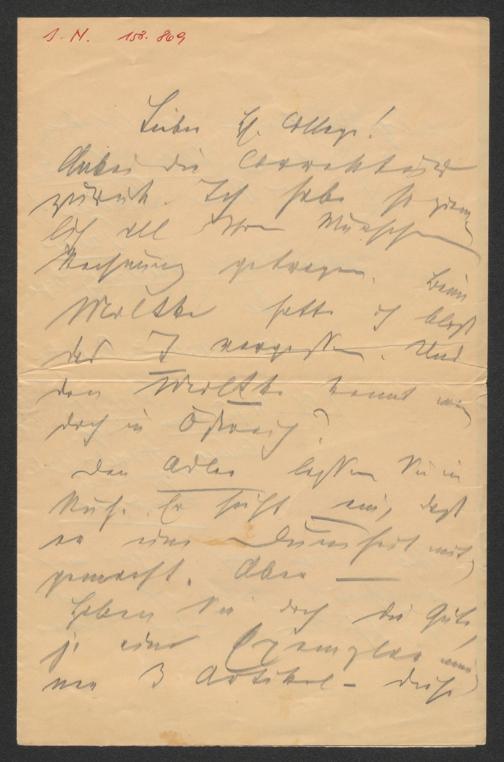 I. N. 158.869
Lieber H. College!
Anbei die Correktur
zurück. Ich habe so ziem-
lich all Ihren Wünschen
Rechnung getragen. Beim
Moltke hatte ich bloß
das J vergessen. Und
den Moltke kennt man
doch in Österreich?
Den Adler lassen Sie in
Ruh. Er sieht ein, daß
er eine Dummheit mit-
gemacht. Aber —
Haben Sie doch die Güte,
je eine Exemplar mei-
ner 3 Artikel –